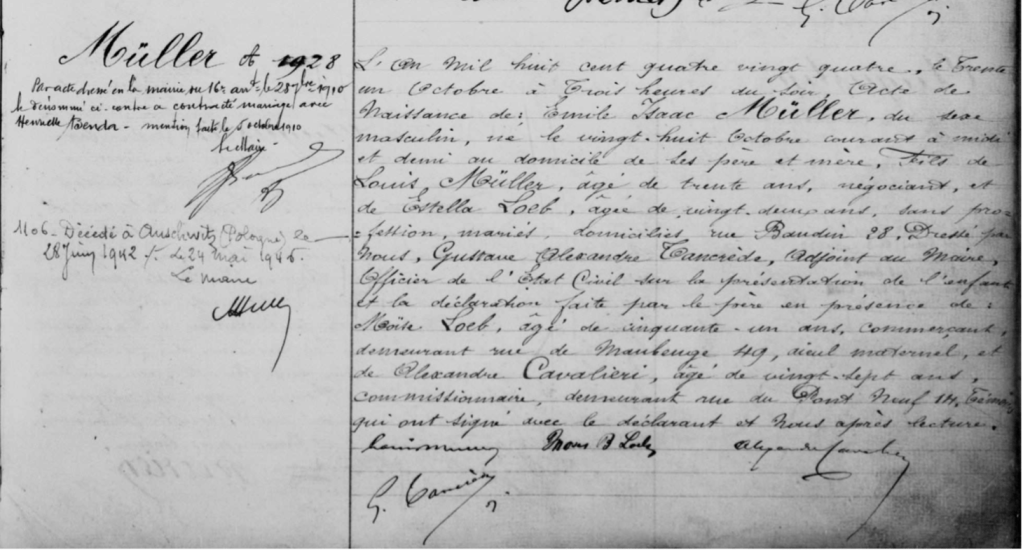 Müller A 1928
Par acte dressé en la mairie du 16e arrt le 28 7bre 1910
le dénommé ci-contre a contracté mariage avec
Henriette Bendor - mention faite le 5 octobre 1910
Le Maire
1106 - Décédé à Auschwitz (Pologne) le
28 Juin 1942 de 24 Mai 1946.
Le maire
L'An Mil huit cent quatre vingt quatre, le Trente
un Octobre à Trois heures du soir, Acte de
Naissance de: Emile Isaac Müller, du sexe
masculin, né le vingt-huit Octobre courant à midi
et demi au domicile de ses père et mère, Fils de
Louis Müller, âgé de trente ans, négociant, et
de Estella Loeb, âgée de vingt-deux ans, sans pro
=fession, mariés, domiciliés, rue Baudin 28, Dressé par
Nous, Gustave Alexandre Tancrède, Adjoint au Maire,
Officier de l'Etat Civil sur la présentation de l'enfant
et la déclaration faite par le père en présence de:
Moïse Loeb, âgé de cinquante-un ans, commerçant,
demeurant rue de Maubeuge 49, aïeul maternel, et
de Alexandre Cavalieri, âgé de vingt-sept ans,
commissionnaire, demeurant rue du Pont Neuf 14, Témoins
qui ont signé avec le déclarant et Nous après lecture.
Louis Muller Moïse B Loeb Alexandre Cavalieri
G. Tancrède